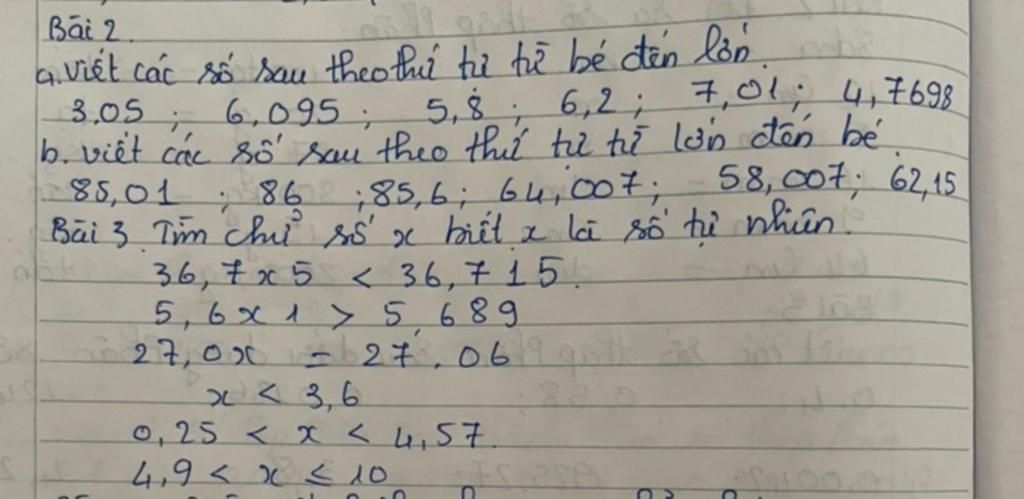 Bài 2.
a. Viết các số sau theo thứ tự từ bé đến lớn.
3,05 ; 6,095 ; 5,8 ; 6,2 ; 7,01 ; 4,7698
b. viết các số sau theo thứ tự từ lớn đến bé
85,01 ; 86 ; 85,6 ; 64,007 ; 58,007 ; 62,15
Bài 3. Tìm chữ số x biết x là số tự nhiên.
36,7x5 < 36,715.
5,6x1 > 5,689
27,0x = 27,06
x < 3,6
0,25 < x < 4,57.
4,9 < x ≤ 10